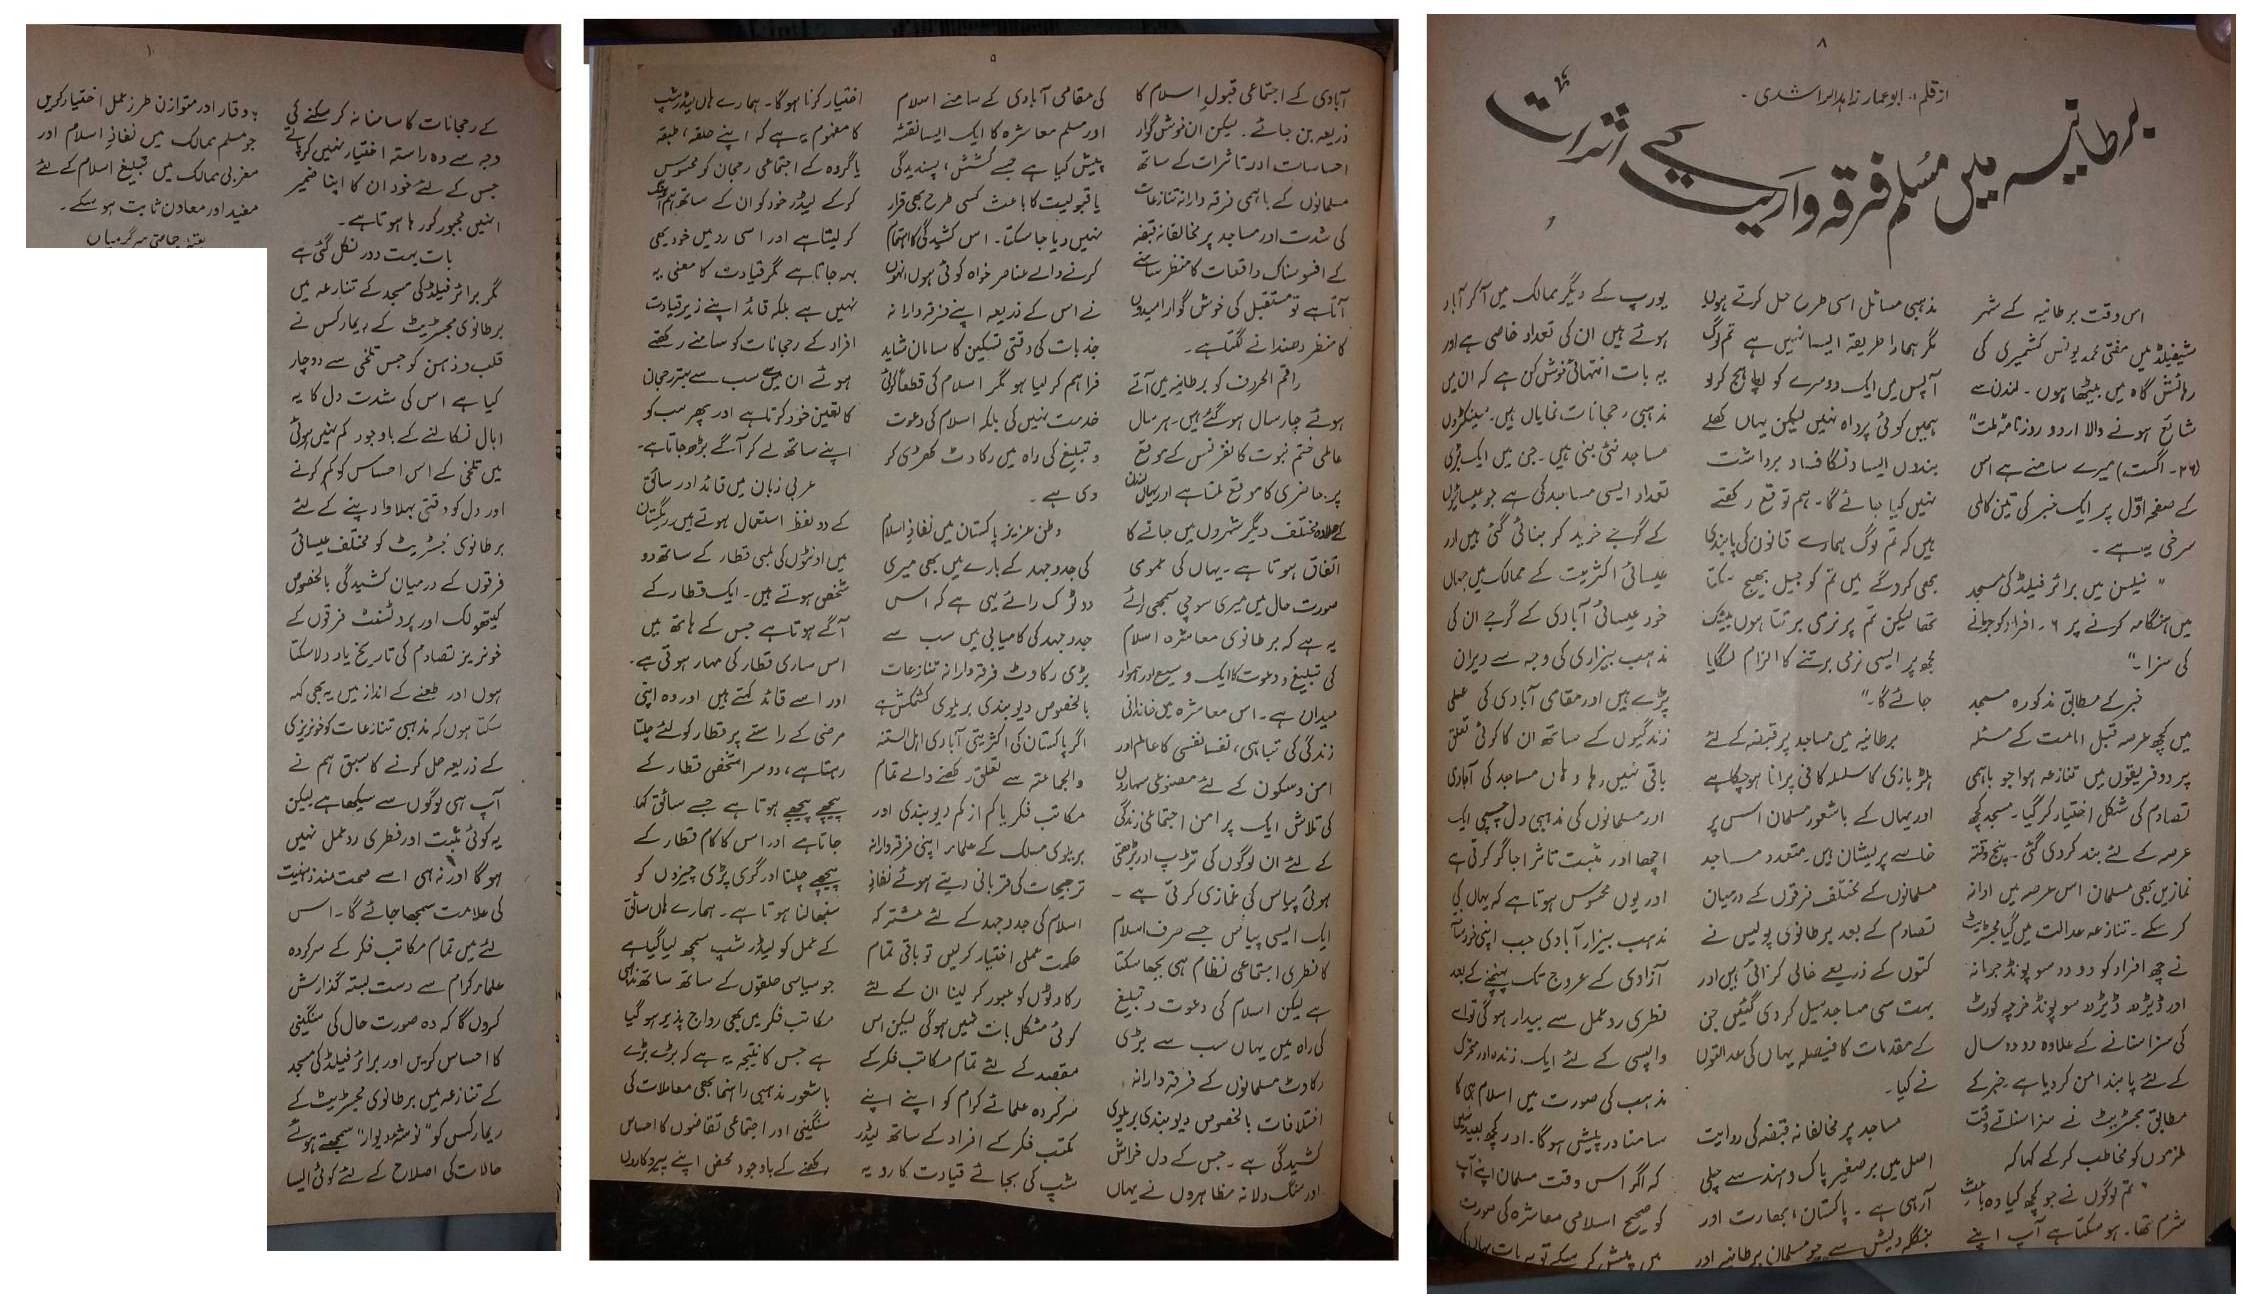 ۸
برطانیہ میں مسلم فرقہ واریت کے اثرات
از قلم :۔ ابوعمار زاہد الراشدی ۔
اس وقت برطانیہ کے شہر
شیفیلڈ میں مفتی محمد یونس کشمیری کی
رہائش گاہ میں بیٹھا ہوں ۔ لندن سے
شائع ہونے والا اردو روزنامہ ملت"
(۲۶۔ اگست) میرے سامنے ہے اس
کے صفحہ اوّل پر ایک خبر کی تین کالمی
سرخی یہ ہے ۔
" نیلسن میں برائر فیلڈ کی مسجد
میں ہنگامہ کرنے پر ۶۔ افراد کو جرمانے
کی سزا ۔"
خبر کے مطابق مذکورہ مسجد
میں کچھ عرصہ قبل امامت کے مسئلہ
پر دو فریقوں میں تنازعہ ہوا جو باہمی
تصادم کی شکل اختیار کر گیا ۔ مسجد کچھ
عرصہ کے لئے بند کر دی گئی ۔ پنج وقتہ
نمازیں بھی مسلمان اس عرصہ میں ادا نہ
کر سکے ۔ تنازعہ عدالت میں گیا مجسٹریٹ
نے چھ افراد کو دو دو سو پونڈ جرمانہ
اور ڈیڑھ ڈیڑھ سو پونڈ خرچہ کورٹ
کی سزا سنانے کے علاوہ دو دو سال
کے لئے پابند امن کر دیا ہے ۔ خبر کے
مطابق مجسٹریٹ نے سزا سناتے وقت
ملزموں کو مخاطب کر کے کہا کہ
" تم لوگوں نے جو کچھ کیا وہ باعث
شرم تھا ۔ ہو سکتا ہے آپ اپنے
مذہبی مسائل اسی طرح حل کرتے ہوں
مگر ہمارا طریقہ ایسا نہیں ہے تم لوگ
آپس میں ایک دوسرے کو اپاہج کر لو
ہمیں کوئی پرواہ نہیں لیکن یہاں کھلے
بندوں ایسا دنگا فساد برداشت
نہیں کیا جائے گا ۔ ہم توقع رکھتے
ہیں کہ تم لوگ ہمارے قانون کی پابندی
بھی کرو گے میں تم کو جیل بھیج سکتا
تھا لیکن تم پر نرمی برتتا ہوں بیشک
مجھ پر ایسی نرمی برتنے کا الزام لگایا
جائے گا ۔"
برطانیہ میں مساجد پر قبضہ کے لئے
ہلڑ بازی کا سلسلہ کافی پرانا ہو چکا ہے
اور یہاں کے باشعور مسلمان اس پر
خاصے پریشان ہیں ۔ متعدد مساجد
مسلمانوں کے مختلف فرقوں کے درمیان
تصادم کے بعد برطانوی پولیس نے
کتوں کے ذریعے خالی کرائی ہیں اور
بہت سی مساجد سیل کر دی گئیں جن
کے مقدمات کا فیصلہ یہاں کی عدالتوں
نے کیا ۔
مساجد پر مخالفانہ قبضہ کی روایت
اصل میں برصغیر پاک و ہند سے چلی
آ رہی ہے ۔ پاکستان ، بھارت اور
بنگلہ دیش سے جو مسلمان برطانیہ اور
یورپ کے دیگر ممالک میں آ کر آباد
ہوئے ہیں ان کی تعداد خاصی ہے اور
یہ بات انتہائی خوش کن ہے کہ ان میں
مذہبی رجحانات نمایاں ہیں ۔ سینکڑوں
مساجد بنی ہیں ۔ جن میں ایک بڑی
تعداد ایسی مساجد کی ہے جو عیسائیوں
کے گرجے خرید کر بنائی گئی ہیں اور
عیسائی اکثریت کے ممالک میں جہاں
خود عیسائی آبادی کے گرجے ان کی
مذہب بیزاری کی وجہ سے ویران
پڑے ہیں اور مقامی آبادی کی عملی
زندگیوں کے ساتھ ان کا کوئی تعلق
باقی نہیں رہا وہاں مساجد کی آبادی
اور مسلمانوں کی مذہبی دلچسپی ایک
اچھا اور مثبت تاثر اجاگر کرتی ہے
اور یوں محسوس ہوتا ہے کہ یہاں کی
مذہب بیزار آبادی جب اپنی خود ساختہ
آزادی کے عروج تک پہنچنے کے بعد
فطری ردعمل سے بیدار ہو گی تو اسے
واپسی کے لئے ایک زندہ اور متحرک
مذہب کی صورت میں اسلام ہی کا
سامنا درپیش ہوگا ۔ اور کچھ بعید نہیں
کہ اگر اس وقت مسلمان اپنے آپ
کو صحیح اسلامی معاشرہ کی صورت
میں پیش کر سکے تو یہ بات یہاں کی
۹
آبادی کے اجتماعی قبولِ اسلام کا
ذریعہ بن جائے ۔ لیکن ان خوش گوار
احساسات اور تاثرات کے ساتھ
مسلمانوں کے باہمی فرقہ وارانہ تنازعات
کی شدت اور مساجد پر مخالفانہ قبضہ
کے افسوسناک واقعات کا منظر سامنے
آتا ہے تو مستقبل کی خوش گوار امیدوں
کا منظر دھندلانے لگتا ہے ۔
راقم الحروف کو برطانیہ میں آتے
ہوئے چار سال ہو گئے ہیں ۔ ہر سال
عالمی ختم نبوت کانفرنس کے موقع
پر حاضری کا موقع ملتا ہے اور یہاں لندن
کے علاوہ مختلف دیگر شہروں میں جانے کا
اتفاق ہوتا ہے ۔ یہاں کی عمومی
صورت حال میں میری سوچی سمجھی رائے
یہ ہے کہ برطانوی معاشرہ اسلام
کی تبلیغ و دعوت کا ایک وسیع اور ہموار
میدان ہے ۔ اس معاشرہ میں خاندانی
زندگی کی تباہی ، نفسا نفسی کا عالم اور
امن و سکون کے لئے مصنوعی سہاروں
کی تلاش ایک پر امن اجتماعی زندگی
کے لئے ان لوگوں کی تڑپ اور بڑھتی
ہوئی پیاس کی غمازی کرتی ہے ۔
ایک ایسی پیاس جسے صرف اسلام
کا فطری اجتماعی نظام ہی بجھا سکتا
ہے لیکن اسلام کی دعوت و تبلیغ
کی راہ میں یہاں سب سے بڑی
رکاوٹ مسلمانوں کے فرقہ وارانہ
اختلافات بالخصوص دیوبندی بریلوی
کشیدگی ہے ۔ جس کے دل خراش
اور سنگدلانہ مظاہروں نے یہاں
کی مقامی آبادی کے سامنے اسلام
اور مسلم معاشرہ کا ایک ایسا نقشہ
پیش کیا ہے جسے کشش ، پسندیدگی
یا قبولیت کا باعث کسی طرح بھی قرار
نہیں دیا جا سکتا ۔ اس کشیدگی کا اہتمام
کرنے والے عناصر خواہ کوئی ہوں انہوں
نے اس کے ذریعہ اپنے فرقہ وارانہ
جذبات کی وقتی تسکین کا سامان شاید
فراہم کر لیا ہو مگر اسلام کی قطعاً کوئی
خدمت نہیں کی بلکہ اسلام کی دعوت
و تبلیغ کی راہ میں رکاوٹ کھڑی کر
دی ہے ۔
وطن عزیز پاکستان میں نفاذِ اسلام
کی جدوجہد کے بارے میں بھی میری
دو ٹوک رائے یہی ہے کہ اس
جدوجہد کی کامیابی میں سب سے
بڑی رکاوٹ فرقہ وارانہ تنازعات
بالخصوص دیوبندی بریلوی کشمکش ہے
اگر پاکستان کی اکثریتی آبادی اہل السنۃ
والجماعۃ سے تعلق رکھنے والے تمام
مکاتب فکر یا کم از کم دیوبندی اور
بریلوی مسلک کے علماء اپنی فرقہ وارانہ
ترجیحات کی قربانی دیتے ہوئے نفاذِ
اسلام کی جدوجہد کے لئے مشترکہ
حکمت عملی اختیار کر لیں تو باقی تمام
رکاوٹوں کو عبور کر لینا ان کے لئے
کوئی مشکل بات نہیں ہوگی لیکن اس
مقصد کے لئے تمام مکاتب فکر کے
سرکردہ علمائے کرام کو اپنے اپنے
مکتب فکر کے افراد کے ساتھ لیڈر
شپ کی بجائے قیادت کا رویہ
اختیار کرنا ہوگا ۔ ہمارے ہاں لیڈرشپ
کا مفہوم یہ ہے کہ اپنے حلقہ ، طبقہ
یا گروہ کے اجتماعی رجحان کو محسوس
کر کے لیڈر خود کو ان کے ساتھ ہم آہنگ
کر لیتا ہے اور اسی رو میں خود بھی
بہہ جاتا ہے مگر قیادت کا معنی یہ
نہیں ہے بلکہ قائد اپنے زیر قیادت
افراد کے رجحانات کو سامنے رکھتے
ہوئے ان میں سب سے بہتر رجحان
کا تعین خود کرتا ہے اور پھر سب کو
اپنے ساتھ لے کر آگے بڑھ جاتا ہے ۔
عربی زبان میں قائد اور سائق
کے دو لفظ استعمال ہوتے ہیں ریگستان
میں اونٹوں کی لمبی قطار کے ساتھ دو
شخص ہوتے ہیں ۔ ایک قطار کے
آگے ہوتا ہے جس کے ہاتھ میں
اس ساری قطار کی مہار ہوتی ہے ۔
اور اسے قائد کہتے ہیں اور وہ اپنی
مرضی کے راستے پر قطار کو لئے چلتا
رہتا ہے ، دوسرا شخص قطار کے
پیچھے پیچھے ہوتا ہے جسے سائق کہا
جاتا ہے اور اس کا کام قطار کے
پیچھے چلنا اور گری پڑی چیزوں کو
سنبھالنا ہوتا ہے ۔ ہمارے ہاں سائق
کے عمل کو لیڈر شپ سمجھ لیا گیا ہے
جو سیاسی حلقوں کے ساتھ ساتھ مذہبی
مکاتب فکر میں بھی رواج پذیر ہو گیا
ہے جس کا نتیجہ یہ ہے کہ بڑے بڑے
باشعور مذہبی راہنما بھی معاملات کی
سنگینی اور اجتماعی تقاضوں کا احساس
رکھنے کے باوجود محض اپنے پیروکاروں
۱۰
کے رجحانات کا سامنا نہ کر سکنے کی
وجہ سے وہ راستہ اختیار نہیں کر پاتے
جس کے لئے خود ان کا اپنا ضمیر
انہیں مجبور کر رہا ہوتا ہے ۔
بات بہت دور نکل گئی ہے
مگر برائر فیلڈ کی مسجد کے تنازعہ میں
برطانوی مجسٹریٹ کے ریمارکس نے
قلب و ذہن کو جس تلخی سے دوچار
کیا ہے اس کی شدت دل کا یہ
ابال نکالنے کے باوجود کم نہیں ہوئی
میں تلخی کے اس احساس کو کم کرنے
اور دل کو وقتی بہلاوا دینے کے لئے
برطانوی مجسٹریٹ کو مختلف عیسائی
فرقوں کے درمیان کشیدگی بالخصوص
کیتھولک اور پروٹسٹنٹ فرقوں کے
خونریز تصادم کی تاریخ یاد دلا سکتا
ہوں اور طعنے کے انداز میں یہ بھی کہہ
سکتا ہوں کہ مذہبی تنازعات کو خونریزی
کے ذریعہ حل کرنے کا سبق ہم نے
آپ ہی لوگوں سے سیکھا ہے لیکن
یہ کوئی مثبت اور فطری ردعمل نہیں
ہوگا اور نہ ہی اسے صحت مند ذہنیت
کی علامت سمجھا جائے گا ۔ اس
لئے میں تمام مکاتب فکر کے سرکردہ
علماء کرام سے دست بستہ گذارش
کروں گا کہ وہ صورت حال کی سنگینی
کا احساس کریں اور برائر فیلڈ کی مسجد
کے تنازعہ میں برطانوی مجسٹریٹ کے
ریمارکس کو "نوشتہ دیوار" سمجھتے ہوئے
حالات کی اصلاح کے لئے کوئی ایسا
پروقار اور متوازن طرز عمل اختیار کریں
جو مسلم ممالک میں نفاذِ اسلام اور
مغربی ممالک میں تبلیغ اسلام کے لئے
مفید اور معاون ثابت ہو سکے ۔
بقیہ: جماعتی سرگرمیاں